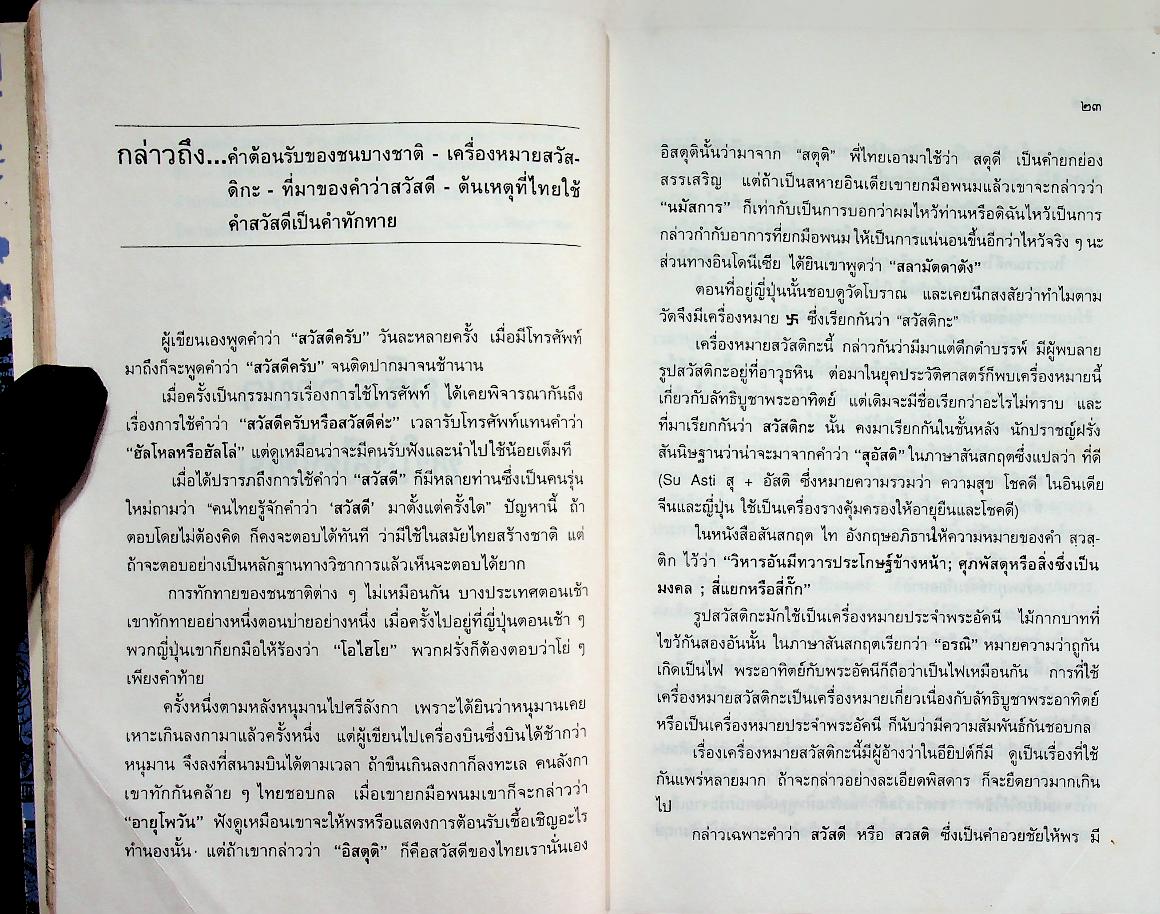 กล่าวถึง...คำต้อนรับของชนบางชาติ - เครื่องหมายสวัส-
ดิกะ - ที่มาของคำว่าสวัสดี - ต้นเหตุที่ไทยใช้
คำสวัสดีเป็นคำทักทาย
ผู้เขียนเองพูดคำว่า “สวัสดีครับ” วันละหลายครั้ง เมื่อมีโทรศัพท์
มาถึงก็จะพูดคำว่า “สวัสดีครับ” จนติดปากมาจนช้านาน
เมื่อครั้งเป็นกรรมการเรื่องการใช้โทรศัพท์ ได้เคยพิจารณากันถึง
เรื่องการใช้คำว่า “สวัสดีครับหรือสวัสดีค่ะ” เวลารับโทรศัพท์แทนคำว่า
“ฮัลโหลหรือฮัลโล่” แต่ดูเหมือนว่าจะมีคนรับฟังและนำไปใช้น้อยเต็มที
เมื่อได้ปรารภถึงการใช้คำว่า “สวัสดี” ก็มีหลายท่านซึ่งเป็นคนรุ่น
ใหม่ถามว่า “คนไทยรู้จักคำว่า ‘สวัสดี’ มาตั้งแต่ครั้งใด” ปัญหานี้ ถ้า
ตอบโดยไม่ต้องคิด ก็คงจะตอบได้ทันที ว่ามีใช้ในสมัยไทยสร้างชาติ แต่
ถ้าจะตอบอย่างเป็นหลักฐานทางวิชาการแล้วเห็นจะตอบได้ยาก
การทักทายของชนชาติต่าง ๆ ไม่เหมือนกัน บางประเทศตอนเช้า
เขาทักทายอย่างหนึ่งตอนบ่ายอย่างหนึ่ง เมื่อครั้งไปอยู่ที่ญี่ปุ่นตอนเช้า ๆ
พวกญี่ปุ่นเขาก็ยกมือให้ร้องว่า “โอไฮโย” พวกฝรั่งก็ต้องตอบว่าโย่ ๆ
เพียงคำท้าย
ครั้งหนึ่งตามหลังหนุมานไปศรีลังกา เพราะได้ยินว่าหนุมานเคย
เหาะเกินลงกามาแล้วครั้งหนึ่ง แต่ผู้เขียนไปเครื่องบินซึ่งบินได้ช้ากว่า
หนุมาน จึงลงที่สนามบินได้ตามเวลา ถ้าขืนเกินลงกาก็ลงทะเล คนลังกา
เขาทักกันคล้าย ๆ ไทยชอบกล เมื่อเขายกมือพนมเขาก็จะกล่าวว่า
“อายุโพวัน” ฟังดูเหมือนเขาจะให้พรหรือแสดงการต้อนรับเชื้อเชิญอะไร
ทำนองนั้น แต่ถ้าเขากล่าวว่า “อิสตุติ” ก็คือสวัสดีของไทยเรานั่นเอง
๒๓
อิสตุตินั้นว่ามาจาก “สตุติ” พี่ไทยเอามาใช้ว่า สดุดี เป็นคำยกย่อง
สรรเสริญ แต่ถ้าเป็นสหายอินเดียเขายกมือพนมแล้วเขาจะกล่าวว่า
“นมัสการ” ก็เท่ากับเป็นการบอกว่าผมไหว้ท่านหรือดิฉันไหว้เป็นการ
กล่าวกำกับอาการที่ยกมือพนม ให้เป็นการแน่นอนขึ้นอีกว่าไหว้จริง ๆ นะ
ส่วนทางอินโดนีเซีย ได้ยินเขาพูดว่า “สลามัตดาตัง”
ตอนที่อยู่ญี่ปุ่นนั้นชอบดูวัดโบราณ และเคยนึกสงสัยว่าทำไมตาม
วัดจึงมีเครื่องหมาย 卐 ซึ่งเรียกกันว่า “สวัสติกะ”
เครื่องหมายสวัสติกะนี้ กล่าวกันว่ามีมาแต่ดึกดำบรรพ์ มีผู้พบลาย
รูปสวัสติกะอยู่ที่อาวุธหิน ต่อมาในยุคประวัติศาสตร์ก็พบเครื่องหมายนี้
เกี่ยวกับลัทธิบูชาพระอาทิตย์ แต่เดิมจะมีชื่อเรียกว่าอะไรไม่ทราบ และ
ที่มาเรียกกันว่า สวัสติกะ นั้น คงมาเรียกกันในชั้นหลัง นักปราชญ์ฝรั่ง
สันนิษฐานว่าน่าจะมาจากคำว่า “สุอัสติ” ในภาษาสันสกฤตซึ่งแปลว่า ที่ดี
(Su Asti สุ + อัสติ ซึ่งหมายความรวมว่า ความสุข โชคดี ในอินเดีย
จีนและญี่ปุ่น ใช้เป็นเครื่องรางคุ้มครองให้อายุยืนและโชคดี)
ในหนังสือสันสกฤต ไท อังกฤษอภิธานให้ความหมายของคำ สฺวสฺ-
ติก ไว้ว่า “วิหารอันมีทวารประโกษฐ์ข้างหน้า; ศุภพัสดุหรือสิ่งซึ่งเป็น
มงคล ; สี่แยกหรือสี่กั๊ก”
รูปสวัสติกะมักใช้เป็นเครื่องหมายประจำพระอัคนี ไม้กากบาทที่
ไขว้กันสองอันนั้น ในภาษาสันสกตเรียกว่า “อรณิ” หมายความว่าถูกัน
เกิดเป็นไฟ พระอาทิตย์กับพระอัคนีก็ถือว่าเป็นไฟเหมือนกัน การที่ใช้
เครื่องหมายสวัสติกะเป็นเครื่องหมายเกี่ยวเนื่องกับลัทธิบูชาพระอาทิตย์
หรือเป็นเครื่องหมายประจำพระอัคนี ก็นับว่ามีความสัมพันธ์กันชอบกล
เรื่องเครื่องหมายสวัสติกะนี้มีผู้อ้างว่าในอียิปต์ก็มี ดูเป็นเรื่องที่ใช้
กันแพร่หลายมาก ถ้าจะกล่าวอย่างละเอียดพิสดาร ก็จะยืดยาวมากเกิน
ไป
กล่าวเฉพาะคำว่า สวัสดี หรือ สวสติ ซึ่งเป็นคำอวยชัยให้พร มี